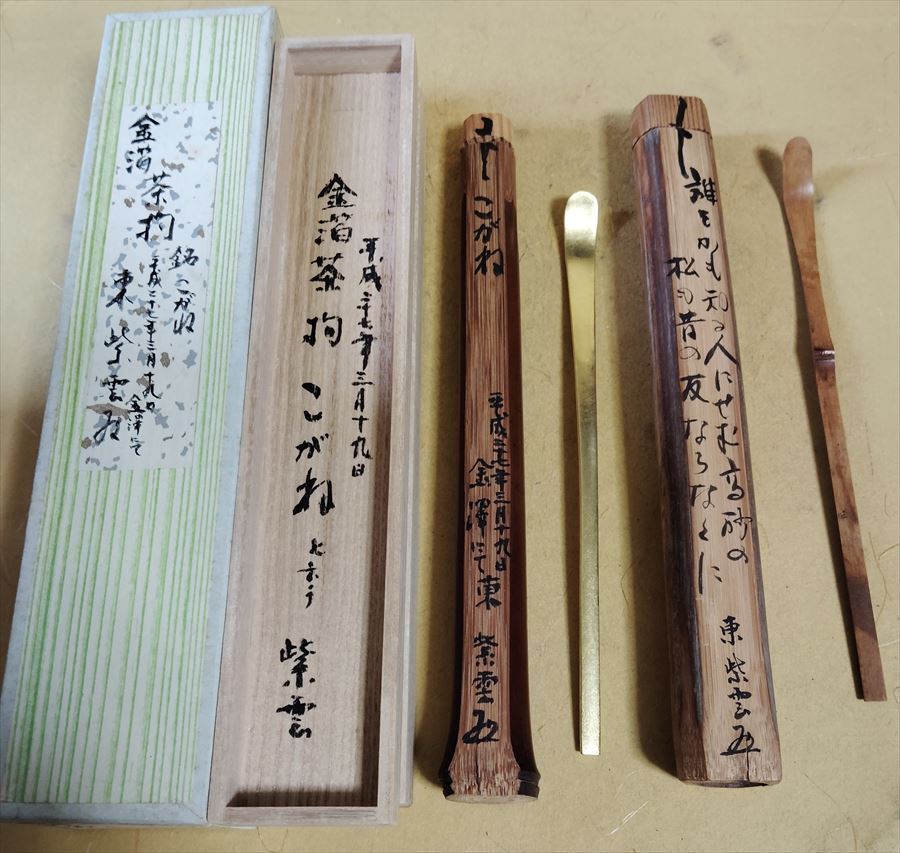 金箔茶杓
銘こがね
平成二十七年三月十九日
金澤にて
東 紫雲
平成二十七年三月十九日
金箔茶杓 こがね
紫雲
こがね
平成二十七年三月十九日
金澤にて
東 紫雲
誰をかも知る人にせむ高砂の
松も昔の友ならなくに
東 紫雲